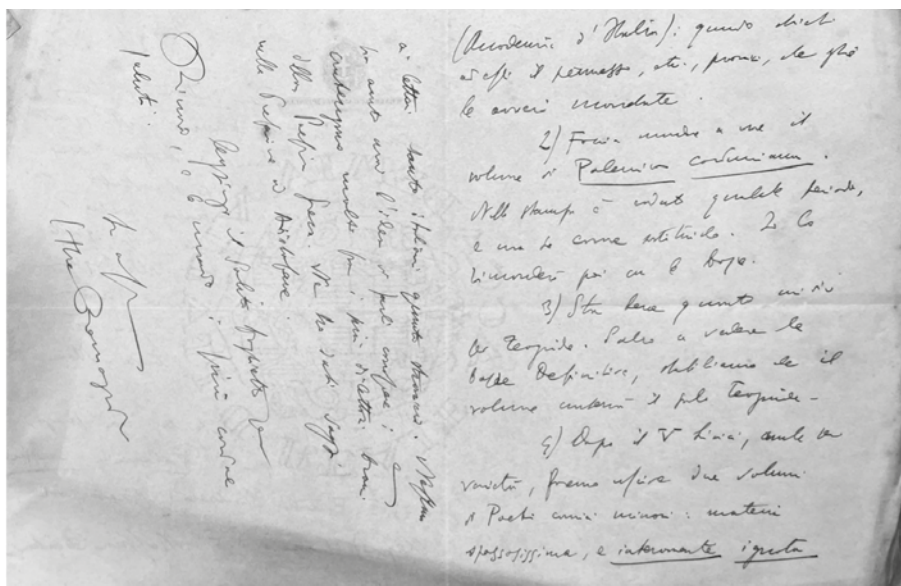 (Accademia d'Italia); quando chiesi
il permesso, che già
le avevi mandate.
2) mandare a me il
volume di Polemica carducciana.
Nella stampa è caduto qualche periodo,
e non so come sostituirlo. Io lo
rimanderò poi con le bozze.
3) Sta bene quanto mi dici
per Teognide. Salvo a vedere le
bozze definitive, stabiliamo che il
volume conterrà il solo Teognide.
4) Dopo il V Lirici, anche per
varietà, faremo uscire due volumi
di Poeti comici minori: materia
spassosissima, e interamente ignota
ai lettori tanto italiani quanto stranieri. Nessuno
ha avuto mai l'idea di farli conoscere: e
contengono molti fra i più brani
della Poesia Greca. Ne ho dati saggi
nella Prefazione ad Aristofane.
il saluto
e le mando i più
saluti.
Suo aff
Ettore Romagnoli